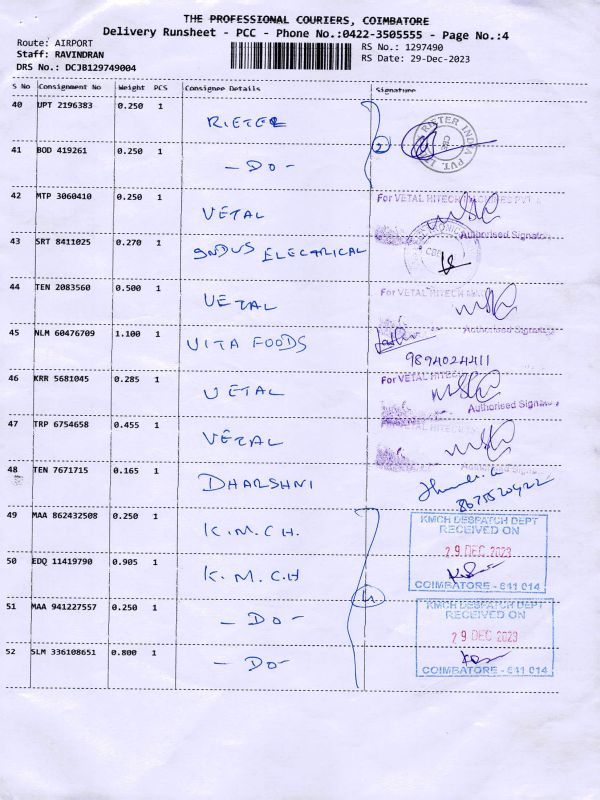 THE PROFESSIONAL COURIERS, COIMBATORE
Delivery Runsheet - PCC - Phone No.:0422-3505555 - Page No.:4
Route: AIRPORT
Staff: RAVINDRAN
DRS No.: DCJB129749004
RS No.: 1297490
RS Date: 29-Dec-2023
S No Consignment No Weight PCS Consignee Details Signature
40 UPT 2196383 0.250 1 RIETER
41 BOD 419261 0.250 1 - DO -
2
RIETER INDIA PVT. LTD.
42 MTP 3060410 0.250 1 VETAL
For VETAL HITECH MACHINES PVT
Authorised Signatory
43 SRT 8411025 0.270 1 INDUS ELECTRICAL
44 TEN 2083560 0.500 1 VETAL
For VETAL HITECH
Authorised Signatory
45 NLM 60476709 1.100 1 VITA FOODS
9894024411
46 KRR 5681045 0.285 1 VETAL
For VETAL HITECH
Authorised Signatory
47 TRP 6754658 0.455 1 VETAL
For VETAL HITECH
Authorised Signatory
48 TEN 7671715 0.165 1 DHARSHNI
8675520422
49 MAA 862432508 0.250 1 K.M.C.H.
KMCH DESPATCH DEPT
RECEIVED ON
29 DEC 2023
COIMBATORE - 641 014
50 EDQ 11419790 0.905 1 K.M.C.H
4
51 MAA 941227557 0.250 1 - DO -
KMCH DESPATCH DEPT
RECEIVED ON
29 DEC 2023
COIMBATORE - 641 014
52 SLM 336108651 0.800 1 - DO -